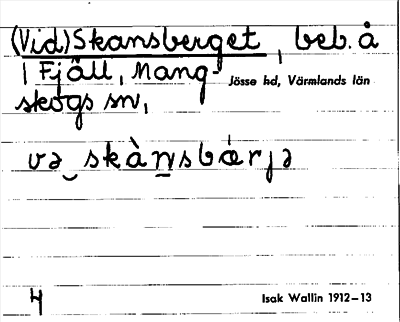 (Vid) Skansberget, beb. å
1 Fjäll, Mang-
skogs sn,
Jösse hd, Värmlands län
və‿skàn̲sbǽrjə
4
Isak Wallin 1912–13